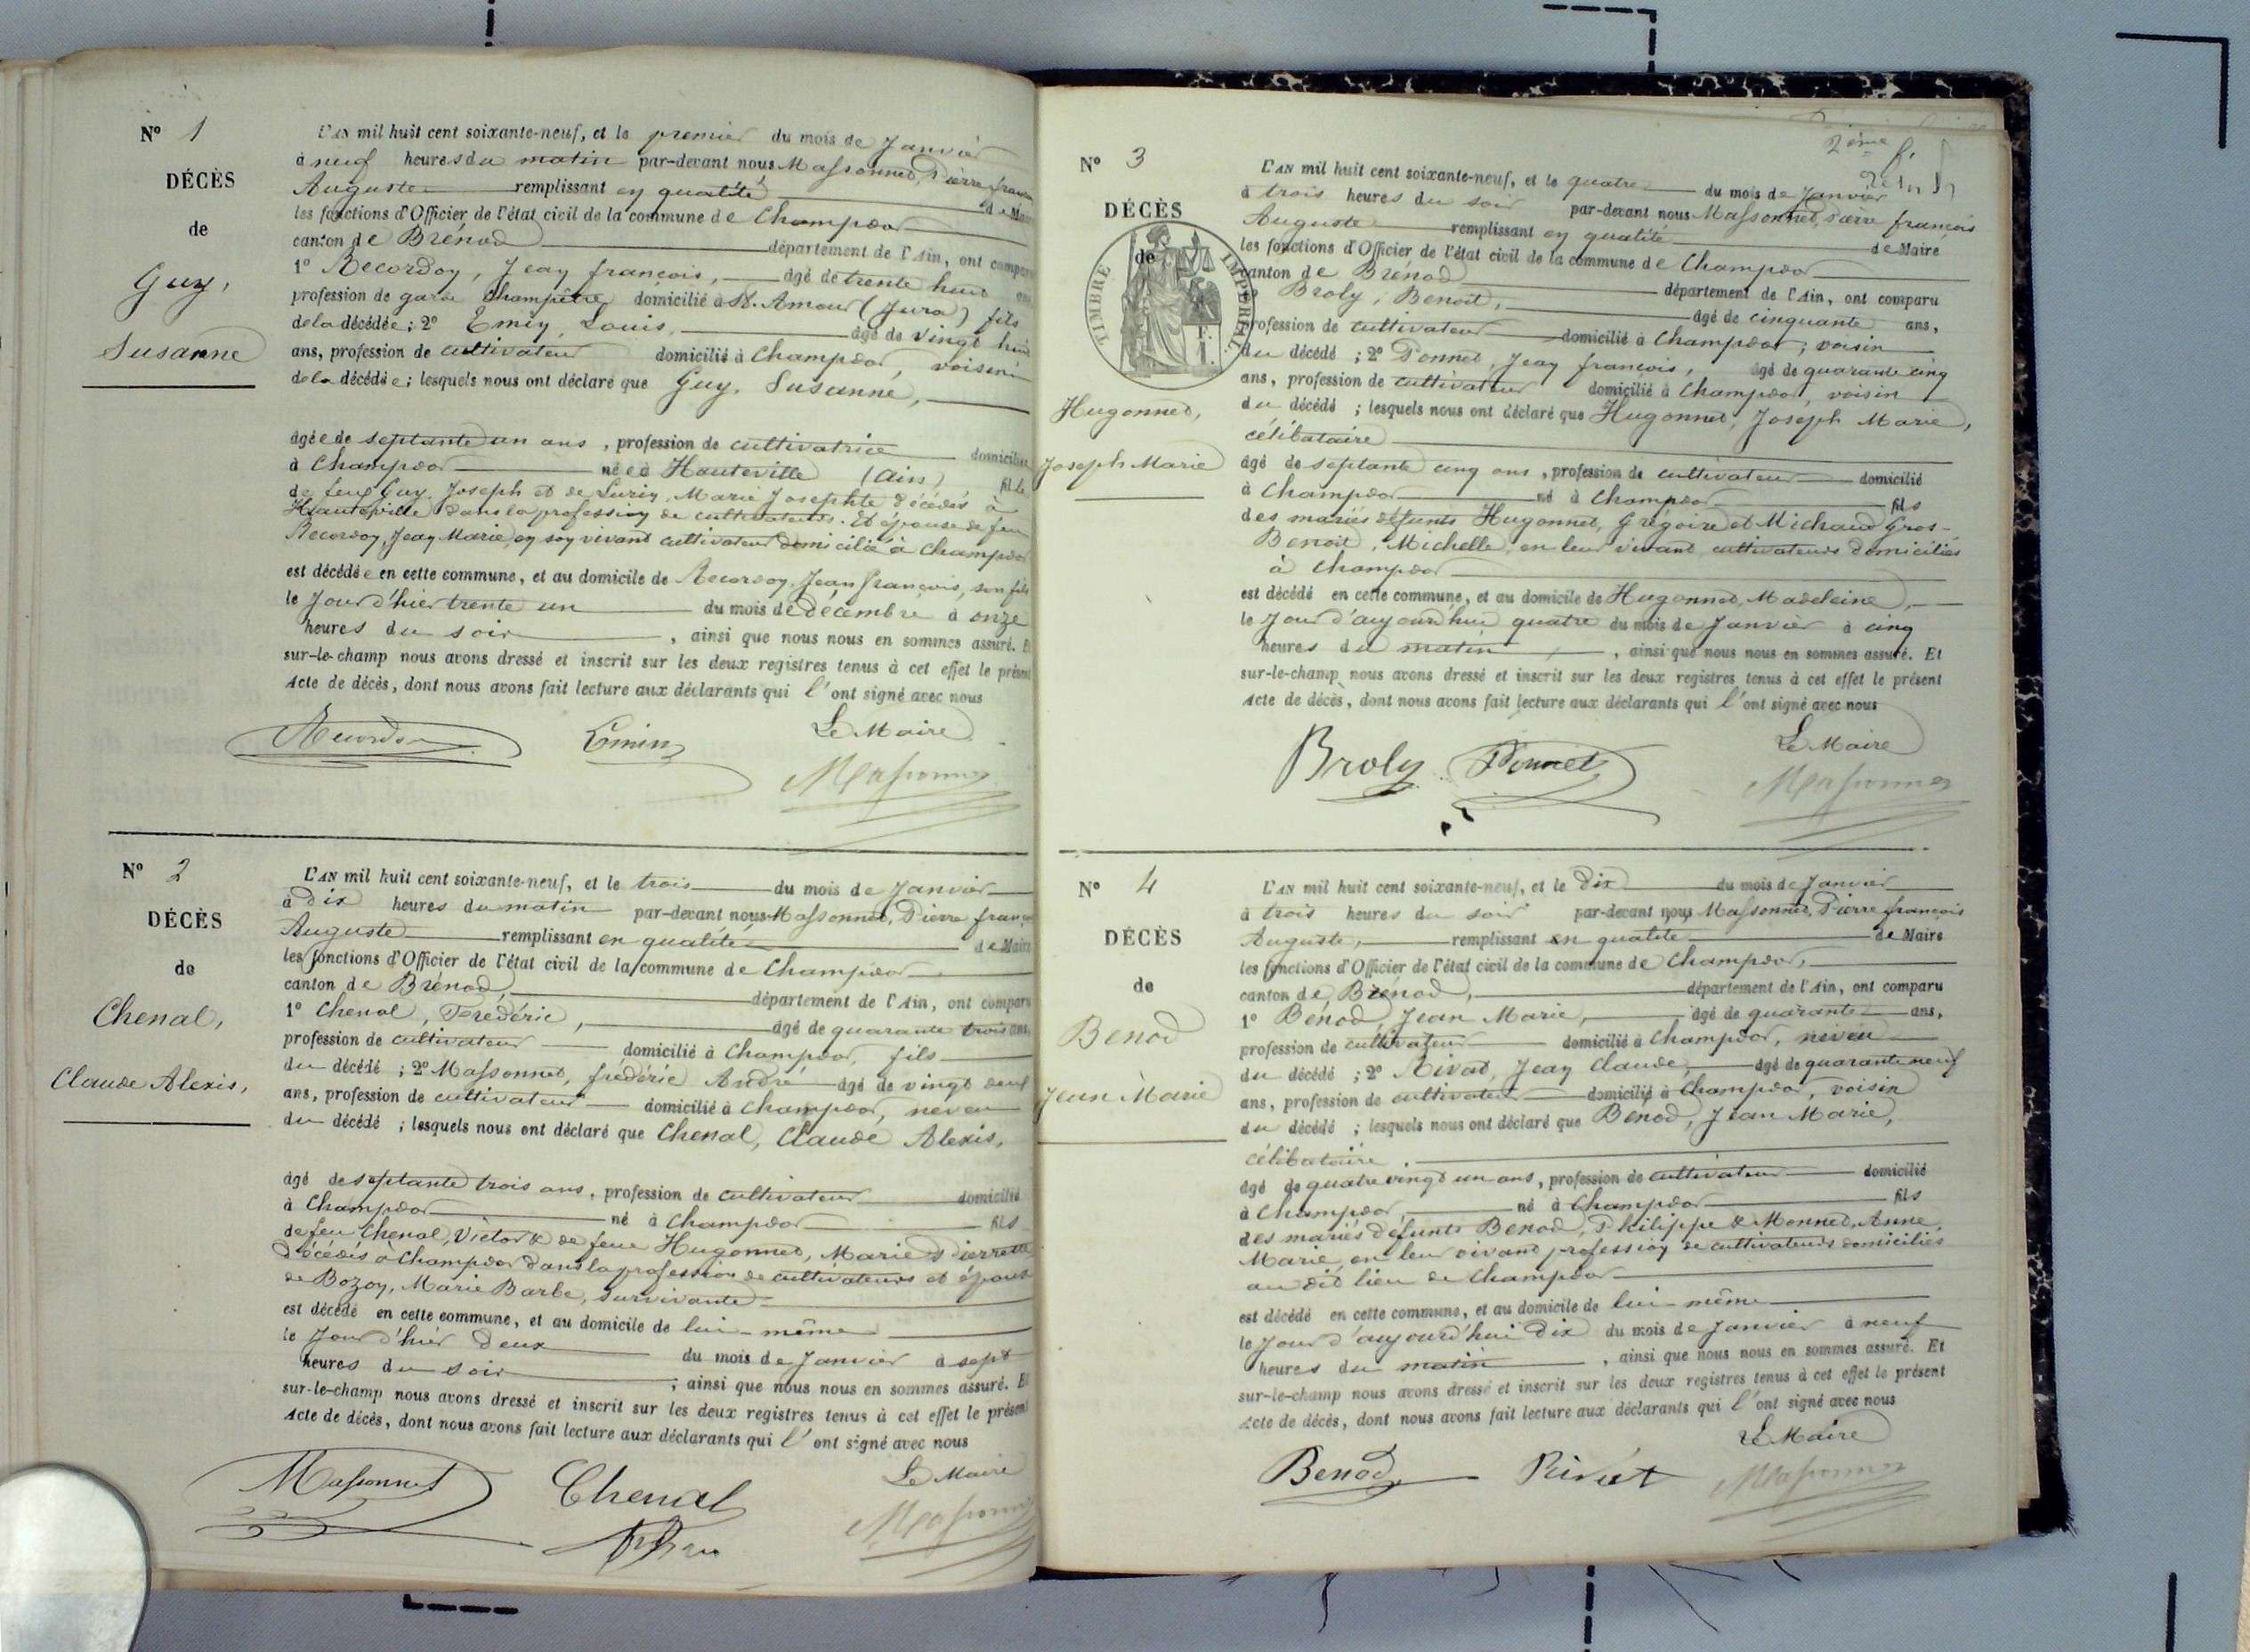 N° 1
DÉCÈS
de
Guy,
Susanne
L'AN mil huit cent soixante-neuf, et le premier du mois de Janvier
à neuf heures du matin par-devant nous Massonnet, Pierre françois
Auguste remplissant en qualité de Maire
les fonctions d'Officier de l'état civil de la commune de Champdor
canton de Brénod département de l'Ain, ont comparu
1° Recordon, Jean françois, âgé de trente huit ans
profession de garde Champêtre domicilié à St. Amour (Jura) fils
de la décédée ; 2° Emin, Louis, âgé de vingt huit
ans, profession de cultivateur domicilié à Champdor, voisin
de la décédée ; lesquels nous ont déclaré que Guy, Susanne,
âgée de septante un ans, profession de cultivatrice domiciliée
à Champdor née à Hauteville (Ain) fille
de feus Guy, Joseph et de Marie Josephte décédés à
Hauteville dans la profession de cultivateurs. Et épouse de feu
Recordon, Jean Marie, en son vivant cultivateur domicilié à Champdor
est décédée en cette commune, et au domicile de Recordon, Jean françois, son fils
le Jour d'hier trente un du mois de décembre à onze
heures du soir, ainsi que nous nous en sommes assuré. Et
sur-le-champ nous avons dressé et inscrit sur les deux registres tenus à cet effet le présent
Acte de décès, dont nous avons fait lecture aux déclarants qui l'ont signé avec nous
Le Maire
Recordon Emin Massonnet
N° 2
DÉCÈS
de
Chenal,
Claude Alexis,
L'AN mil huit cent soixante-neuf, et le trois du mois de Janvier
à dix heures du matin par-devant nous Massonnet, Pierre françois
Auguste remplissant en qualité de Maire
les fonctions d'Officier de l'état civil de la commune de Champdor
canton de Brénod, département de l'Ain, ont comparu
1° Chenal, Frédéric, âgé de quarante trois ans,
profession de cultivateur domicilié à Champdor, fils
du décédé ; 2° Massonnet, frédéric André âgé de vingt neuf
ans, profession de cultivateur domicilié à Champdor, neveu
du décédé ; lesquels nous ont déclaré que Chenal, Claude Alexis,
âgé de septante trois ans, profession de cultivateur domicilié
à Champdor né à Champdor fils
de feu Chenal, Victor & de feue Hugonnet, Marie Pierrette
Décédés à Champdor dans la profession de cultivateurs et époux
de Bozon, Marie Barbe, survivante
est décédé en cette commune, et au domicile de lui-même
le Jour d'hier deux du mois de Janvier à sept
heures du soir, ainsi que nous nous en sommes assuré. Et
sur-le-champ nous avons dressé et inscrit sur les deux registres tenus à cet effet le présent
Acte de décès, dont nous avons fait lecture aux déclarants qui l'ont signé avec nous
Le Maire
Massonnet Chenal Massonnet
2ème f.
N° 3
DÉCÈS
de
TIMBRE IMPERIAL
Hugonnet,
Joseph Marie
L'AN mil huit cent soixante-neuf, et le quatre du mois de Janvier
à trois heures du soir par-devant nous Massonnet, Pierre françois
Auguste remplissant en qualité de Maire
les fonctions d'Officier de l'état civil de la commune de Champdor
canton de Brénod département de l'Ain, ont comparu
Broly, Benoît, âgé de cinquante ans,
profession de cultivateur domicilié à Champdor, voisin
du décédé ; 2° Ponnet, Jean françois, âgé de quarante cinq
ans, profession de cultivateur domicilié à Champdor, voisin
du décédé ; lesquels nous ont déclaré que Hugonnet, Joseph Marie,
célibataire
âgé de septante cinq ans, profession de cultivateur domicilié
à Champdor né à Champdor fils
des mariés défunts Hugonnet, Grégoire et Michaud Gros-
Benoit, Michelle, en leur vivant cultivateurs domiciliés
à Champdor
est décédé en cette commune, et au domicile de Hugonnet, Madeleine,
le Jour d'aujourd'hui quatre du mois de Janvier à cinq
heures du matin, ainsi que nous nous en sommes assuré. Et
sur-le-champ nous avons dressé et inscrit sur les deux registres tenus à cet effet le présent
Acte de décès, dont nous avons fait lecture aux déclarants qui l'ont signé avec nous
Le Maire
Broly Ponnet Massonnet
N° 4
DÉCÈS
de
Benod
Jean Marie
L'AN mil huit cent soixante-neuf, et le Dix du mois de Janvier
à trois heures du soir par-devant nous Massonnet, Pierre françois
Auguste, remplissant en qualité de Maire
les fonctions d'Officier de l'état civil de la commune de Champdor,
canton de Brénod, département de l'Ain, ont comparu
1° Benod, Jean Marie, âgé de quarante ans,
profession de cultivateur domicilié à Champdor, neveu
du décédé ; 2° Rivat, Jean Claude, âgé de quarante neuf
ans, profession de cultivateur domicilié à Champdor, voisin
du décédé ; lesquels nous ont déclaré que Benod, Jean Marie,
célibataire.
âgé de quatre vingt un ans, profession de cultivateur domicilié
à Champdor, né à Champdor fils
des mariés défunts Benod, Philippe & Monnet, Anne
Marie, en leur vivant profession de cultivateurs domiciliés
au dit lieu de Champdor
est décédé en cette commune, et au domicile de lui-même
le Jour d'aujourd'hui Dix du mois de Janvier à neuf
heures du matin, ainsi que nous nous en sommes assuré. Et
sur-le-champ nous avons dressé et inscrit sur les deux registres tenus à cet effet le présent
Acte de décès, dont nous avons fait lecture aux déclarants qui l'ont signé avec nous
Le Maire
Benod Rivat Massonnet